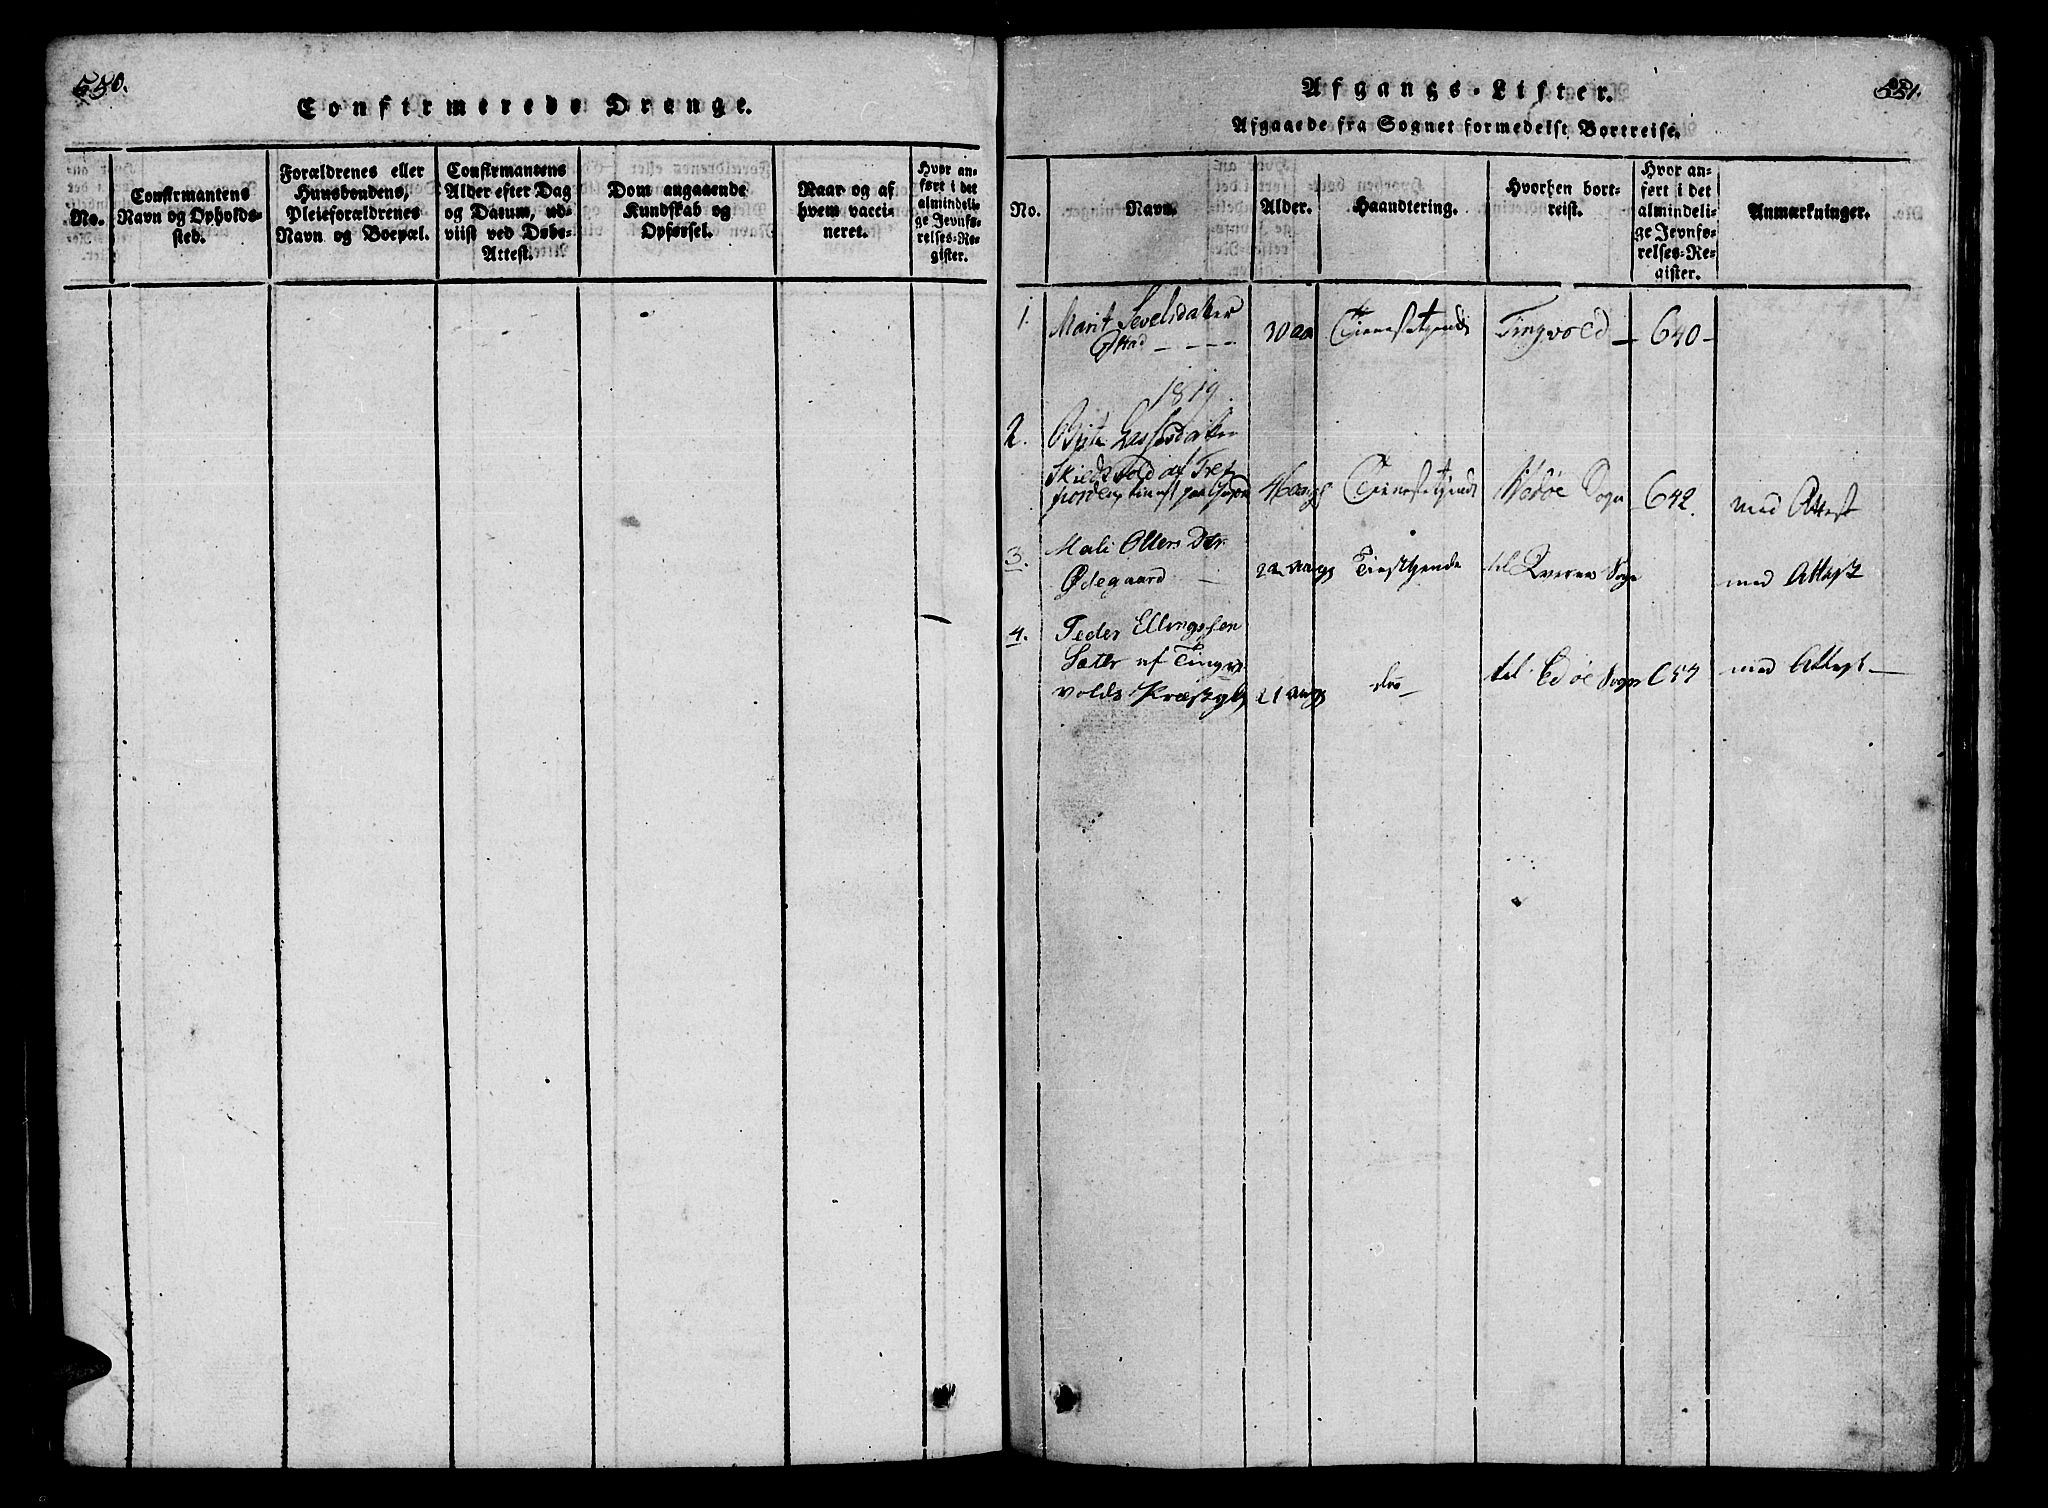 550.
Confirmerede Drenge.
No.
Confirmantens
Navn og Opholds-
sted.
Forældrenes eller
Huusbondens,
Pleieforældrenes
Navn og Boepæl.
Confirmantens
Alder efter Dag
og Datum, ud-
viist ved Døbe-
Attest.
Dom angaaende
Kundskab og
Opførsel.
Naar og af
hvem vacci-
neret.
Hvor an-
ført i det
almindeli-
ge Jevnfø-
relses-Re-
gister.
551.
Afgangs-Lister.
Afgaaede fra Sognet formedelst Bortreise.
No.
Navn.
Alder.
Haandtering.
Hvorhen bort-
reist.
Hvor an-
ført i det
almindeli-
ge Jevnfø-
relses-Re-
gister.
Anmærkninger.
1. Marit Sevelsdatter
30 aa Tienestetjende Tingvold 640
1819.
2.
Skiedsvold af
Tienestetjende Sogn 642. med Attest
3. Mali Ollers Dtr
Ødegaard 22 aargs Tiensttjende til Qverns Sogn med Attest
4. Peder Ellingssøn
Sæter af Ting-
volds Præstgld 21 aargs do til Edøe Sogn 657 med Attest